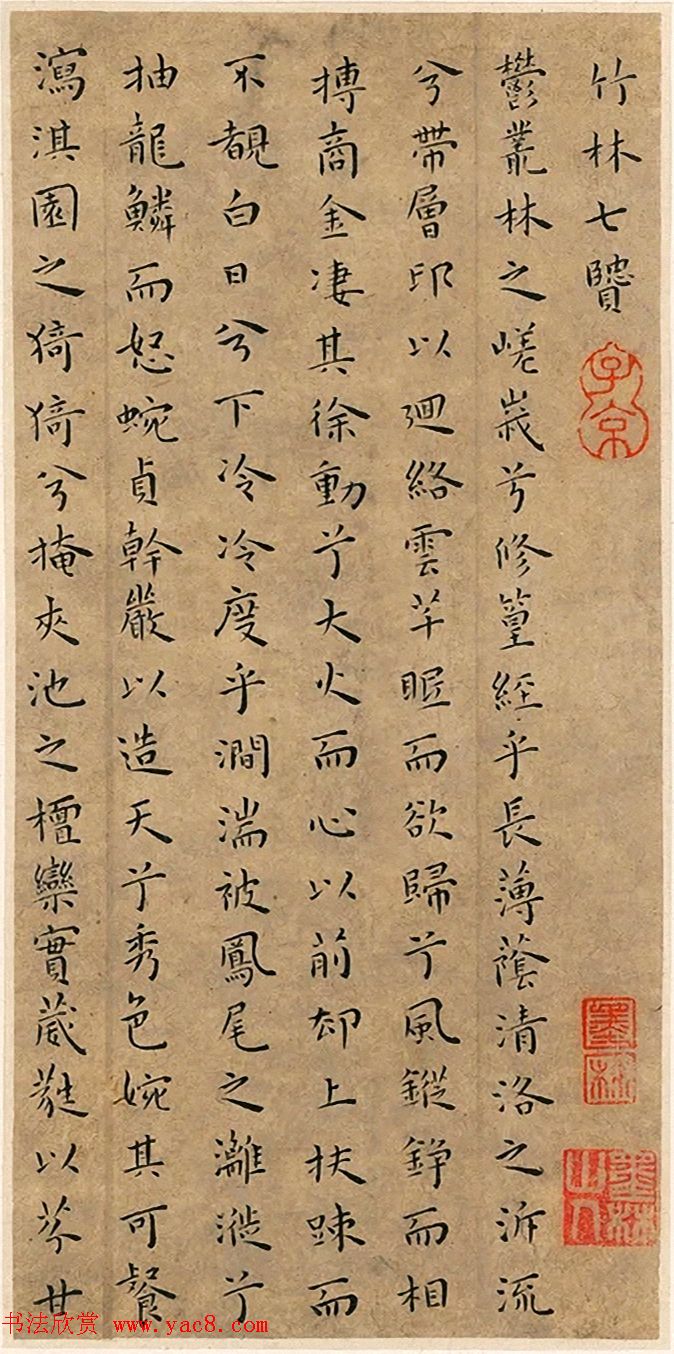 竹林七賢
鬱叢林之嵯峩兮修篁經乎長薄蔭清洛之泝流
兮帶層邙以迴絡雲芊眠而欲歸兮風鏦錚而相
搏商金淒其徐動兮大火而心以前却上扶踈而
不覩白日兮下泠泠度乎澗湍被鳳尾之灕漇兮
抽龍鱗而怒蜿貞幹嚴以造天兮秀色婉其可餐
瀉淇園之猗猗兮掩夾池之檀欒實葳蕤以芬甘
子京
墨林
書法欣賞 www.yac8.com